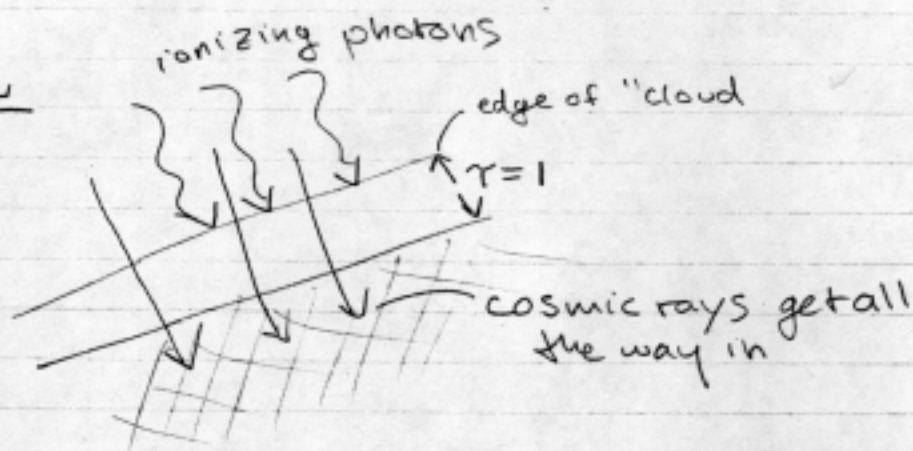 ionizing photons
edge of "cloud
τ = 1
cosmic rays get all
the way in